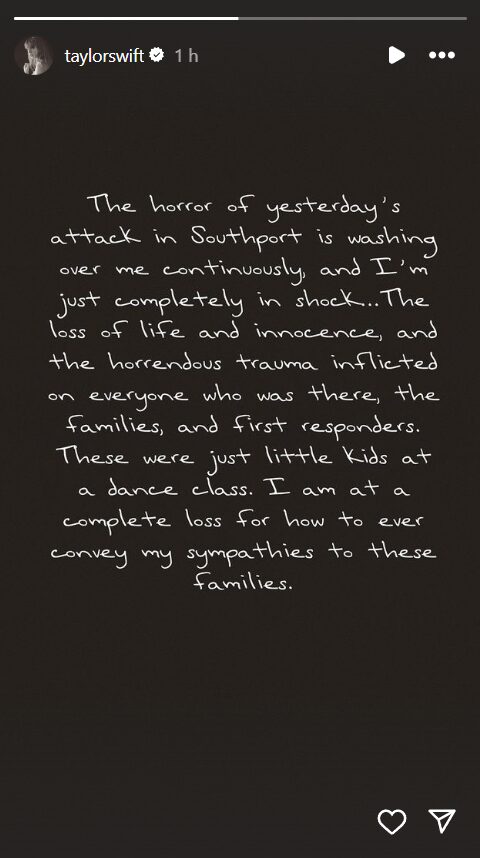 taylorswift 1 h
The horror of yesterday's
attack in Southport is washing
over me continuously, and I'm
just completely in shock...The
loss of life and innocence, and
the horrendous trauma inflicted
on everyone who was there, the
families, and first responders.
These were just little kids at
a dance class. I am at a
complete loss for how to ever
convey my sympathies to these
families.